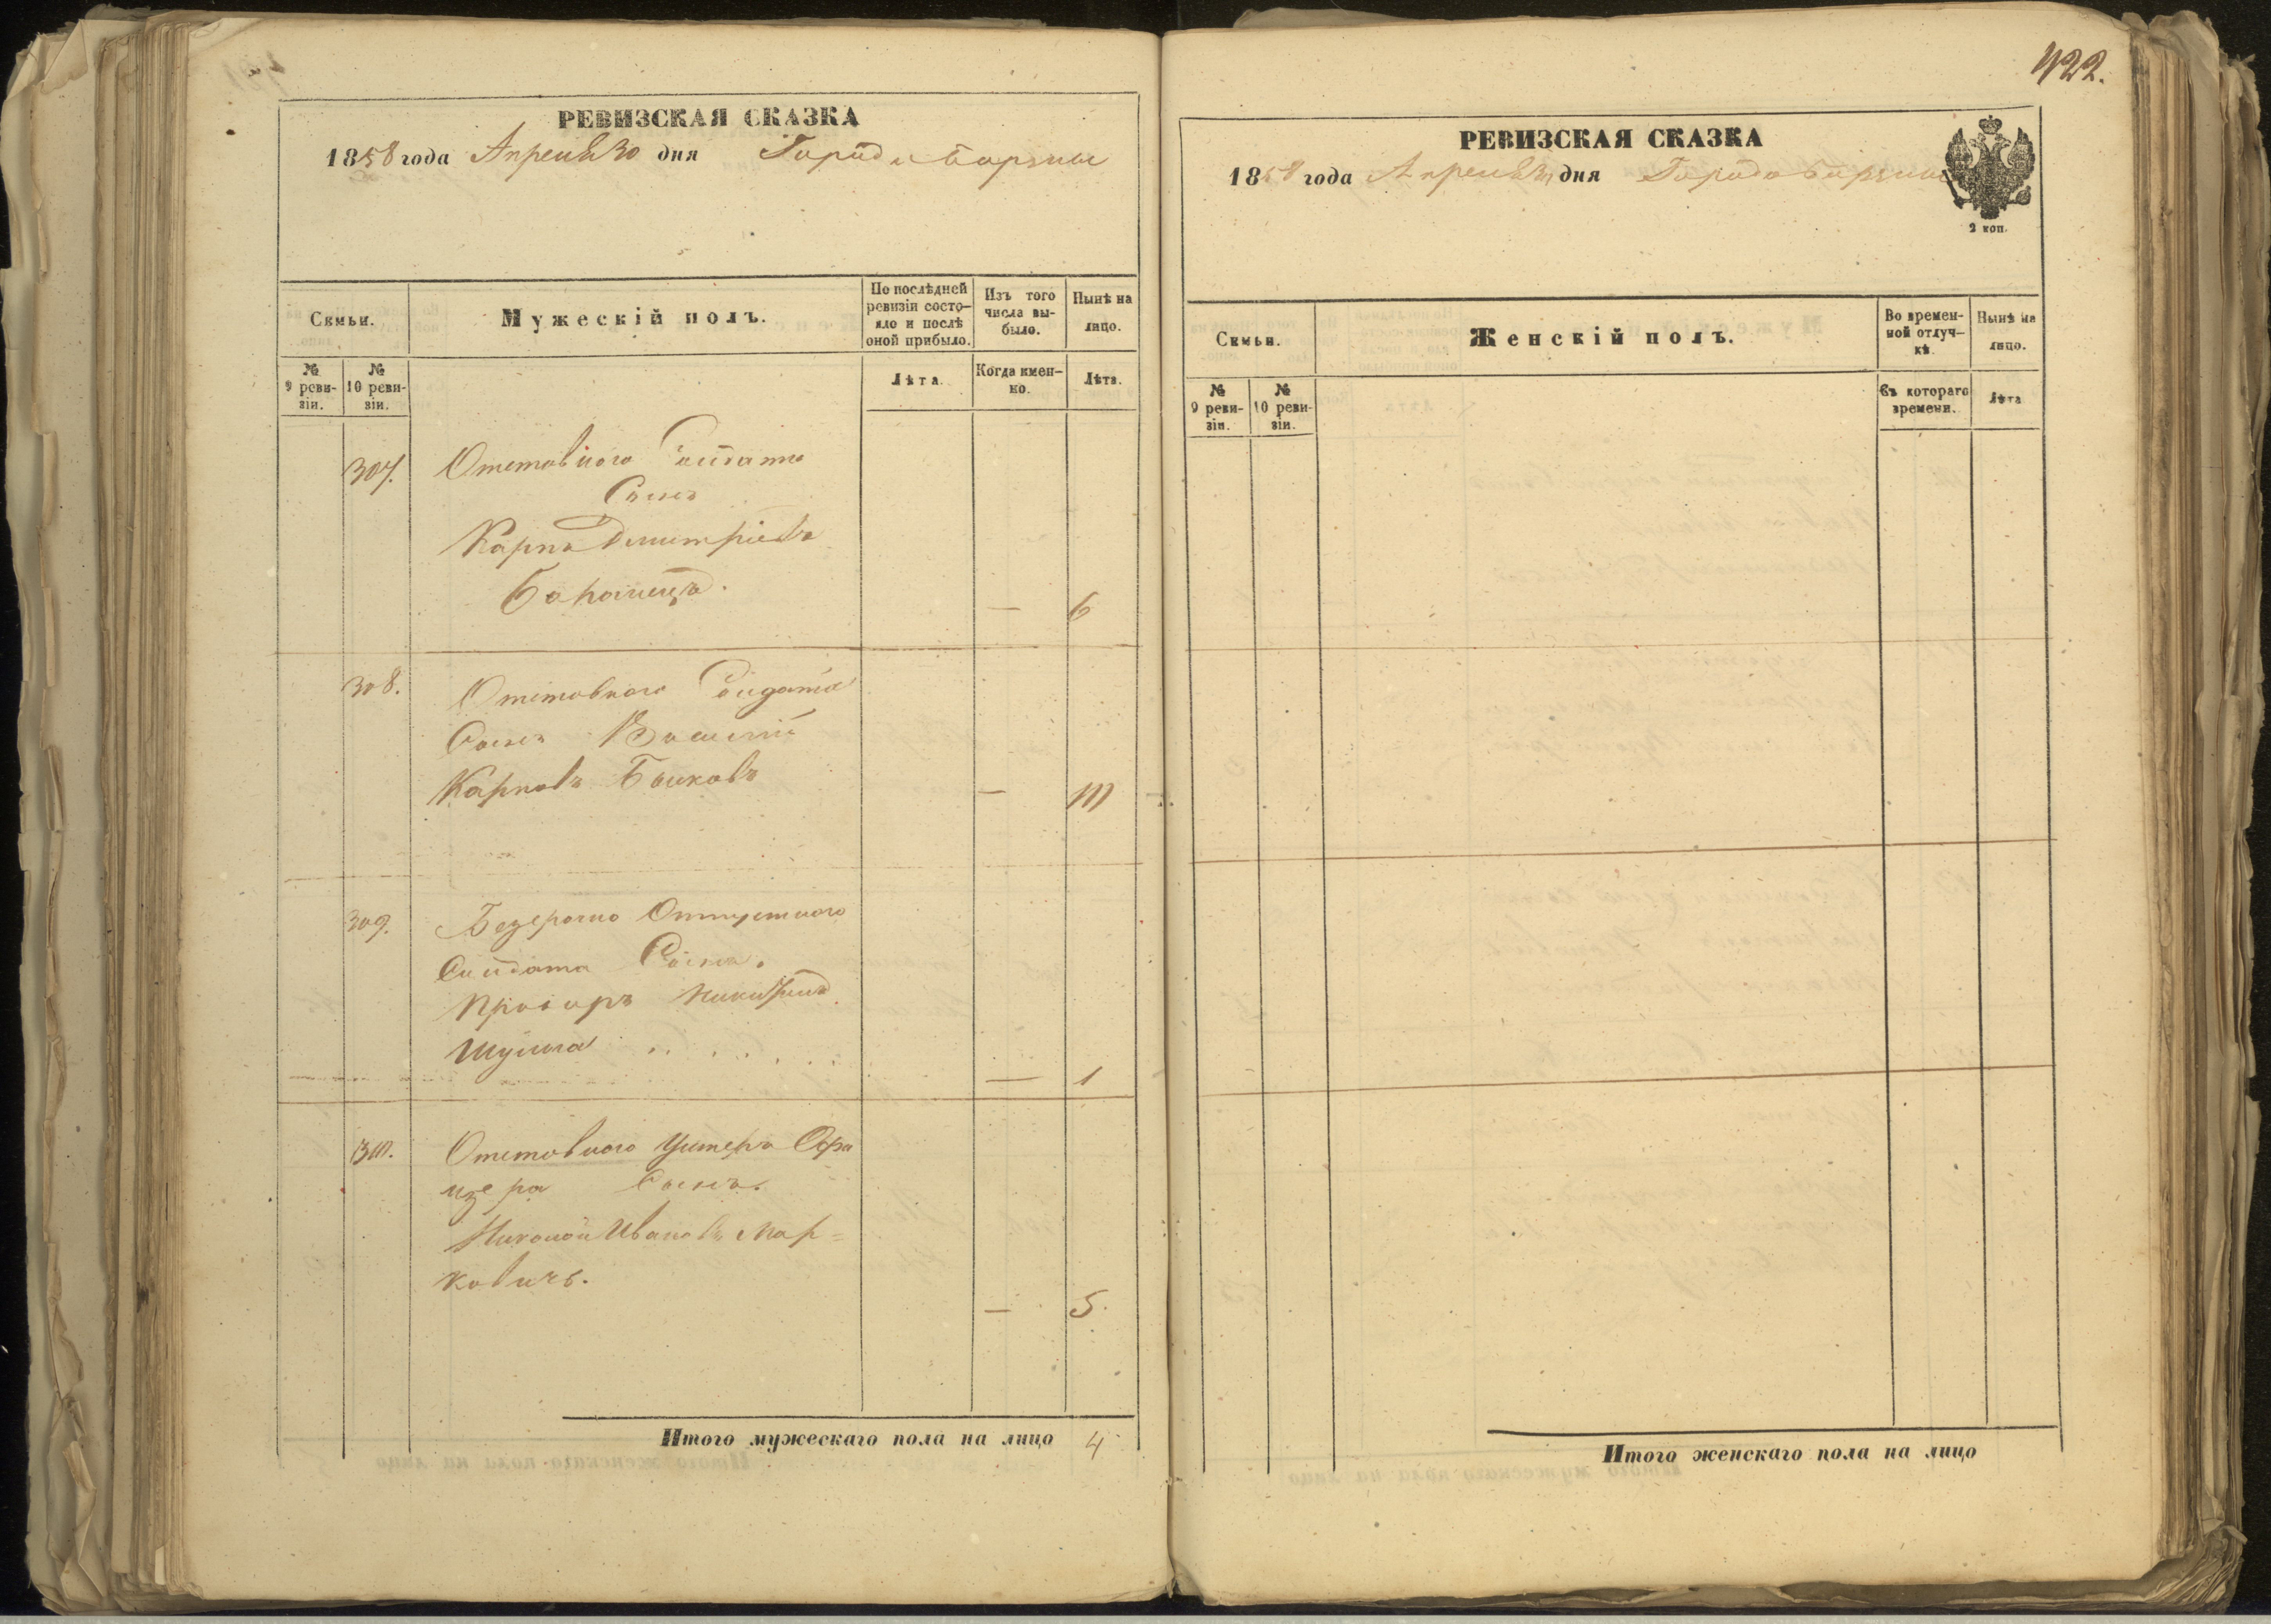 422.
РЕВИЗСКАЯ СКАЗКА
1858 года Апреля 30 дня Города Борзны
Семьи.
Мужескій полъ.
По послѣдней ревизіи состояло и послѣ оной прибыло.
Изъ того числа выбыло.
Нынѣ на лицо.
№ 9 ревизіи.
№ 10 ревизіи.
Лѣта.
Когда именно.
Лѣта.
307. Отставного Солдата
Сынъ
Карпъ Дмитріевъ
— 6
308. Отставного Солдата
Сынъ Василій
Карповъ Быковъ
— 10
309. Безсрочно Отпускного
Солдата Сынъ.
Прохоръ Никитинъ
Шульга
— 1
310. Отставного Унтеръ Офи
цера Сынъ.
Николай Ивановъ Мар=
ковичъ.
— 5.
Итого мужескаго пола на лицо 4
РЕВИЗСКАЯ СКАЗКА
1858 года Апреля 30 дня Города Борзны
2 коп.
Семьи.
Женскій полъ.
Во временной отлучкѣ.
Нынѣ на лицо.
№ 9 ревизіи.
№ 10 ревизіи.
Съ котораго времени.
Лѣта
Итого женскаго пола на лицо